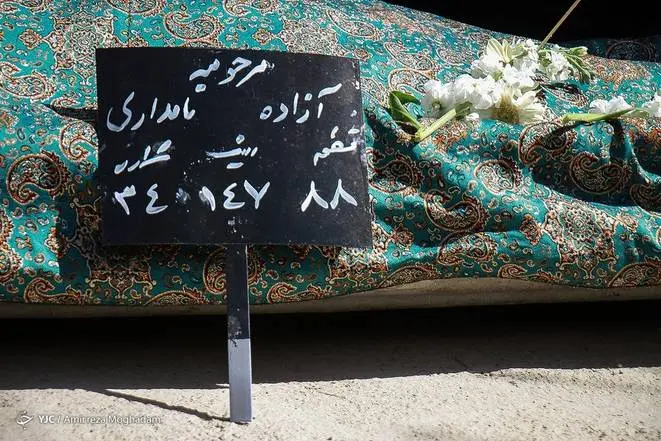 مرحومه
آزاده نامداری
قطعه ردیف شماره
۸۸ ۱۴۷ ۳۴
YJC / Amirreza Moghadam